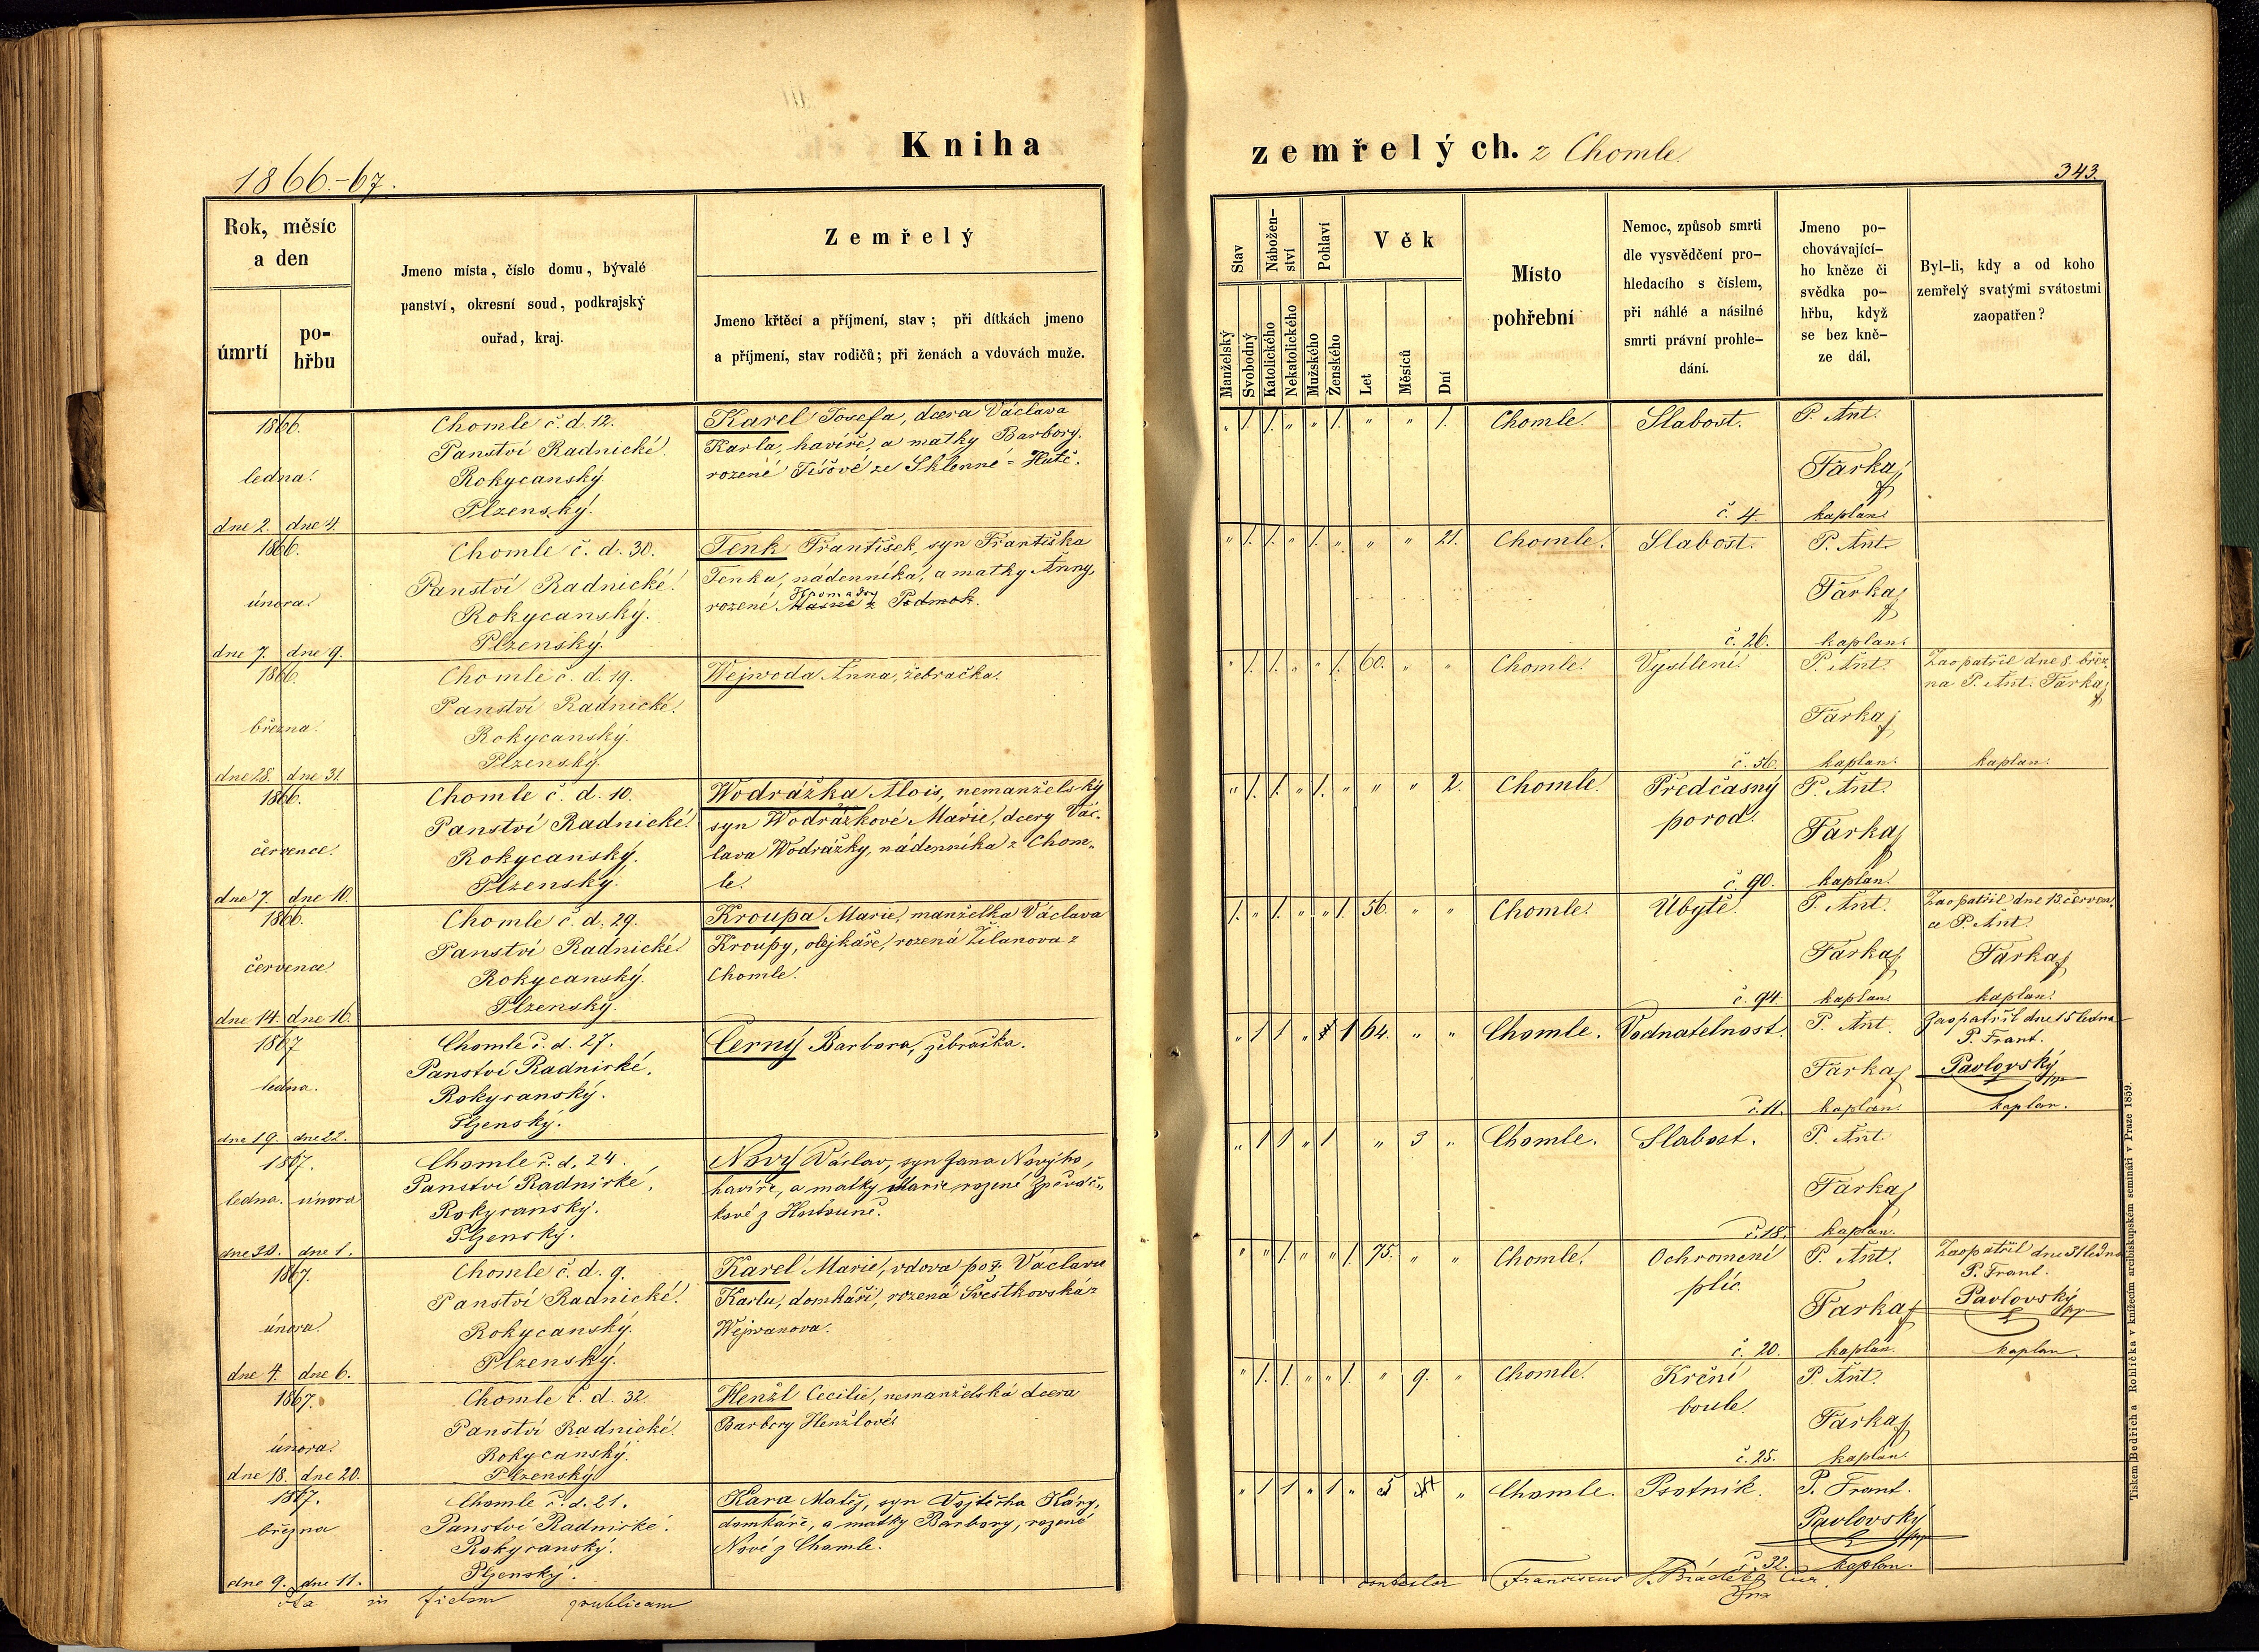 Kniha
zemřelých. z Chomle.
1866.-67.
343.
Rok, měsíc
a den
úmrtí
po-
hřbu
Jmeno místa, číslo domu, bývalé
panství, okresní soud, podkrajský
ouřad, kraj.
Zemřelý
Jmeno křtěcí a příjmení, stav; při dítkách jmeno
a příjmení, stav rodičů; při ženách a vdovách muže.
Stav
Nábožen-
ství
Pohlaví
Věk
Manželský
Svobodný
Katolického
Nekatolického
Mužského
Ženského
Let
Měsíců
Dní
Místo
pohřební
Nemoc, způsob smrti
dle vysvědčení pro-
hledacího s číslem,
při náhlé a násilné
smrti právní prohle-
dání.
Jmeno po-
chovávající-
ho kněze či
svědka po-
hřbu, když
se bez kně-
ze dál.
Byl-li, kdy a od koho
zemřelý svatými svátostmi
zaopatřen?
1866.
ledna.
dne 2. dne 4.
Chomle č. d. 12.
Panství Radnické.
Rokycanský.
Plzenský.
Karel Josefa, dcera Václava
Karla, havíře, a matky Barbory,
rozené Tišové ze Sklenné-Hutě.
" 1. 1. " " 1. " " 1. Chomle. Slabost. P. Ant.
Farka
č. 4. kaplan.
1866.
února.
dne 7. dne 9.
Chomle č. d. 30.
Panství Radnické.
Rokycanský.
Plzenský.
Tenk František, syn Františka
Tenka, nádenníka, a matky Anny,
rozené Hromady z Podmok.
" 1. 1. " 1. " " " 21. Chomle. Slabost. P. Ant.
Farka
č. 26. kaplan.
1866.
března.
dne 28. dne 31.
Chomle č. d. 19.
Panství Radnické.
Rokycanský.
Plzenský.
Wejwoda Anna, žebračka.
" 1. 1. " " 1. 60. " " Chomle. Vysílení. P. Ant.
Farka
č. 56. kaplan.
Zaopatřil dne 8. břez-
na P. Ant. Farka
kaplan.
1866.
července.
dne 7. dne 10.
Chomle č. d. 10.
Panství Radnické.
Rokycanský.
Plzenský.
Wodrážka Alois, nemanželský
syn Wodrážkové Marie, dcery Vác-
lava Wodrážky, nádenníka z Chom-
le.
" 1. 1. " 1. " " " 2. Chomle. Předčasný P. Ant.
porod.
Farka
č. 90. kaplan.
1866.
července.
dne 14. dne 16.
Chomle č. d. 29.
Panství Radnické.
Rokycanský.
Plzenský.
Kroupa Marie, manželka Václava
Kroupy, olejkáře, rozená Žilanova z
Chomle.
1. " 1. " " 1. 56. " " Chomle. Úbytě. P. Ant.
Farka
č. 94. kaplan.
Zaopatřil dne 13. červen-
ce P. Ant.
Farka
kaplan.
1867
ledna.
dne 19. dne 22.
Chomle č. d. 27.
Panství Radnické.
Rokycanský.
Plzenský.
Černý Barbora, žebračka.
" 1 1 " 1 64. " " Chomle. Vodnatelnost. P. Ant.
Farka
č. 11. kaplan.
Zaopatřil dne 15 ledna
P. Frant.
Pavlovský
kaplan.
1867.
ledna. února
dne 30. dne 1.
Chomle č. d. 24.
Panství Radnické.
Rokycanský.
Plzenský.
Nový Václav, syn Jana Nového,
havíře, a matky Marie, rozené Zpěváč-
kové z Hostouně.
" 1 1 " 1 " 3 " Chomle. Slabost. P. Ant.
Farka
č. 18. kaplan.
1867.
února.
dne 4. dne 6.
Chomle č. d. 9.
Panství Radnické.
Rokycanský.
Plzenský.
Karel Marie, vdova poz. Václavu
Karlu, domkáři, rozená Švestkovská z
Wejwanova.
" " 1. " " 1. 75. " " Chomle. Ochromení P. Ant.
plic.
Farka
č. 20. kaplan.
Zaopatřil dne 31 ledna
P. Frant.
Pavlovský
kaplan.
1867.
února.
dne 18. dne 20.
Chomle č. d. 32
Panství Radnické.
Rokycanský.
Plzenský
Henžl Cecilie, nemanželská dcera
Barbory Henžlové.
" 1. 1. " " 1. " 9. " Chomle. Krční P. Ant.
boule.
Farka
č. 25. kaplan.
1867.
března
dne 9. dne 11.
Chomle č. d. 21.
Panství Radnické.
Rokycanský.
Plzenský.
Kara Matěj, syn Vojtěcha Káry,
domkáře, a matky Barbory, rozené
Nové z Chomle.
" 1 1 " 1 " 5 " Chomle. Psotník. P. Frant.
Pavlovský
č. 32. kaplan.
Ita in fidem publicam
contestor Franciscus
Tiskem Bedřicha Rohlíčka v knížecím arcibiskupském semináři v Praze 1859.